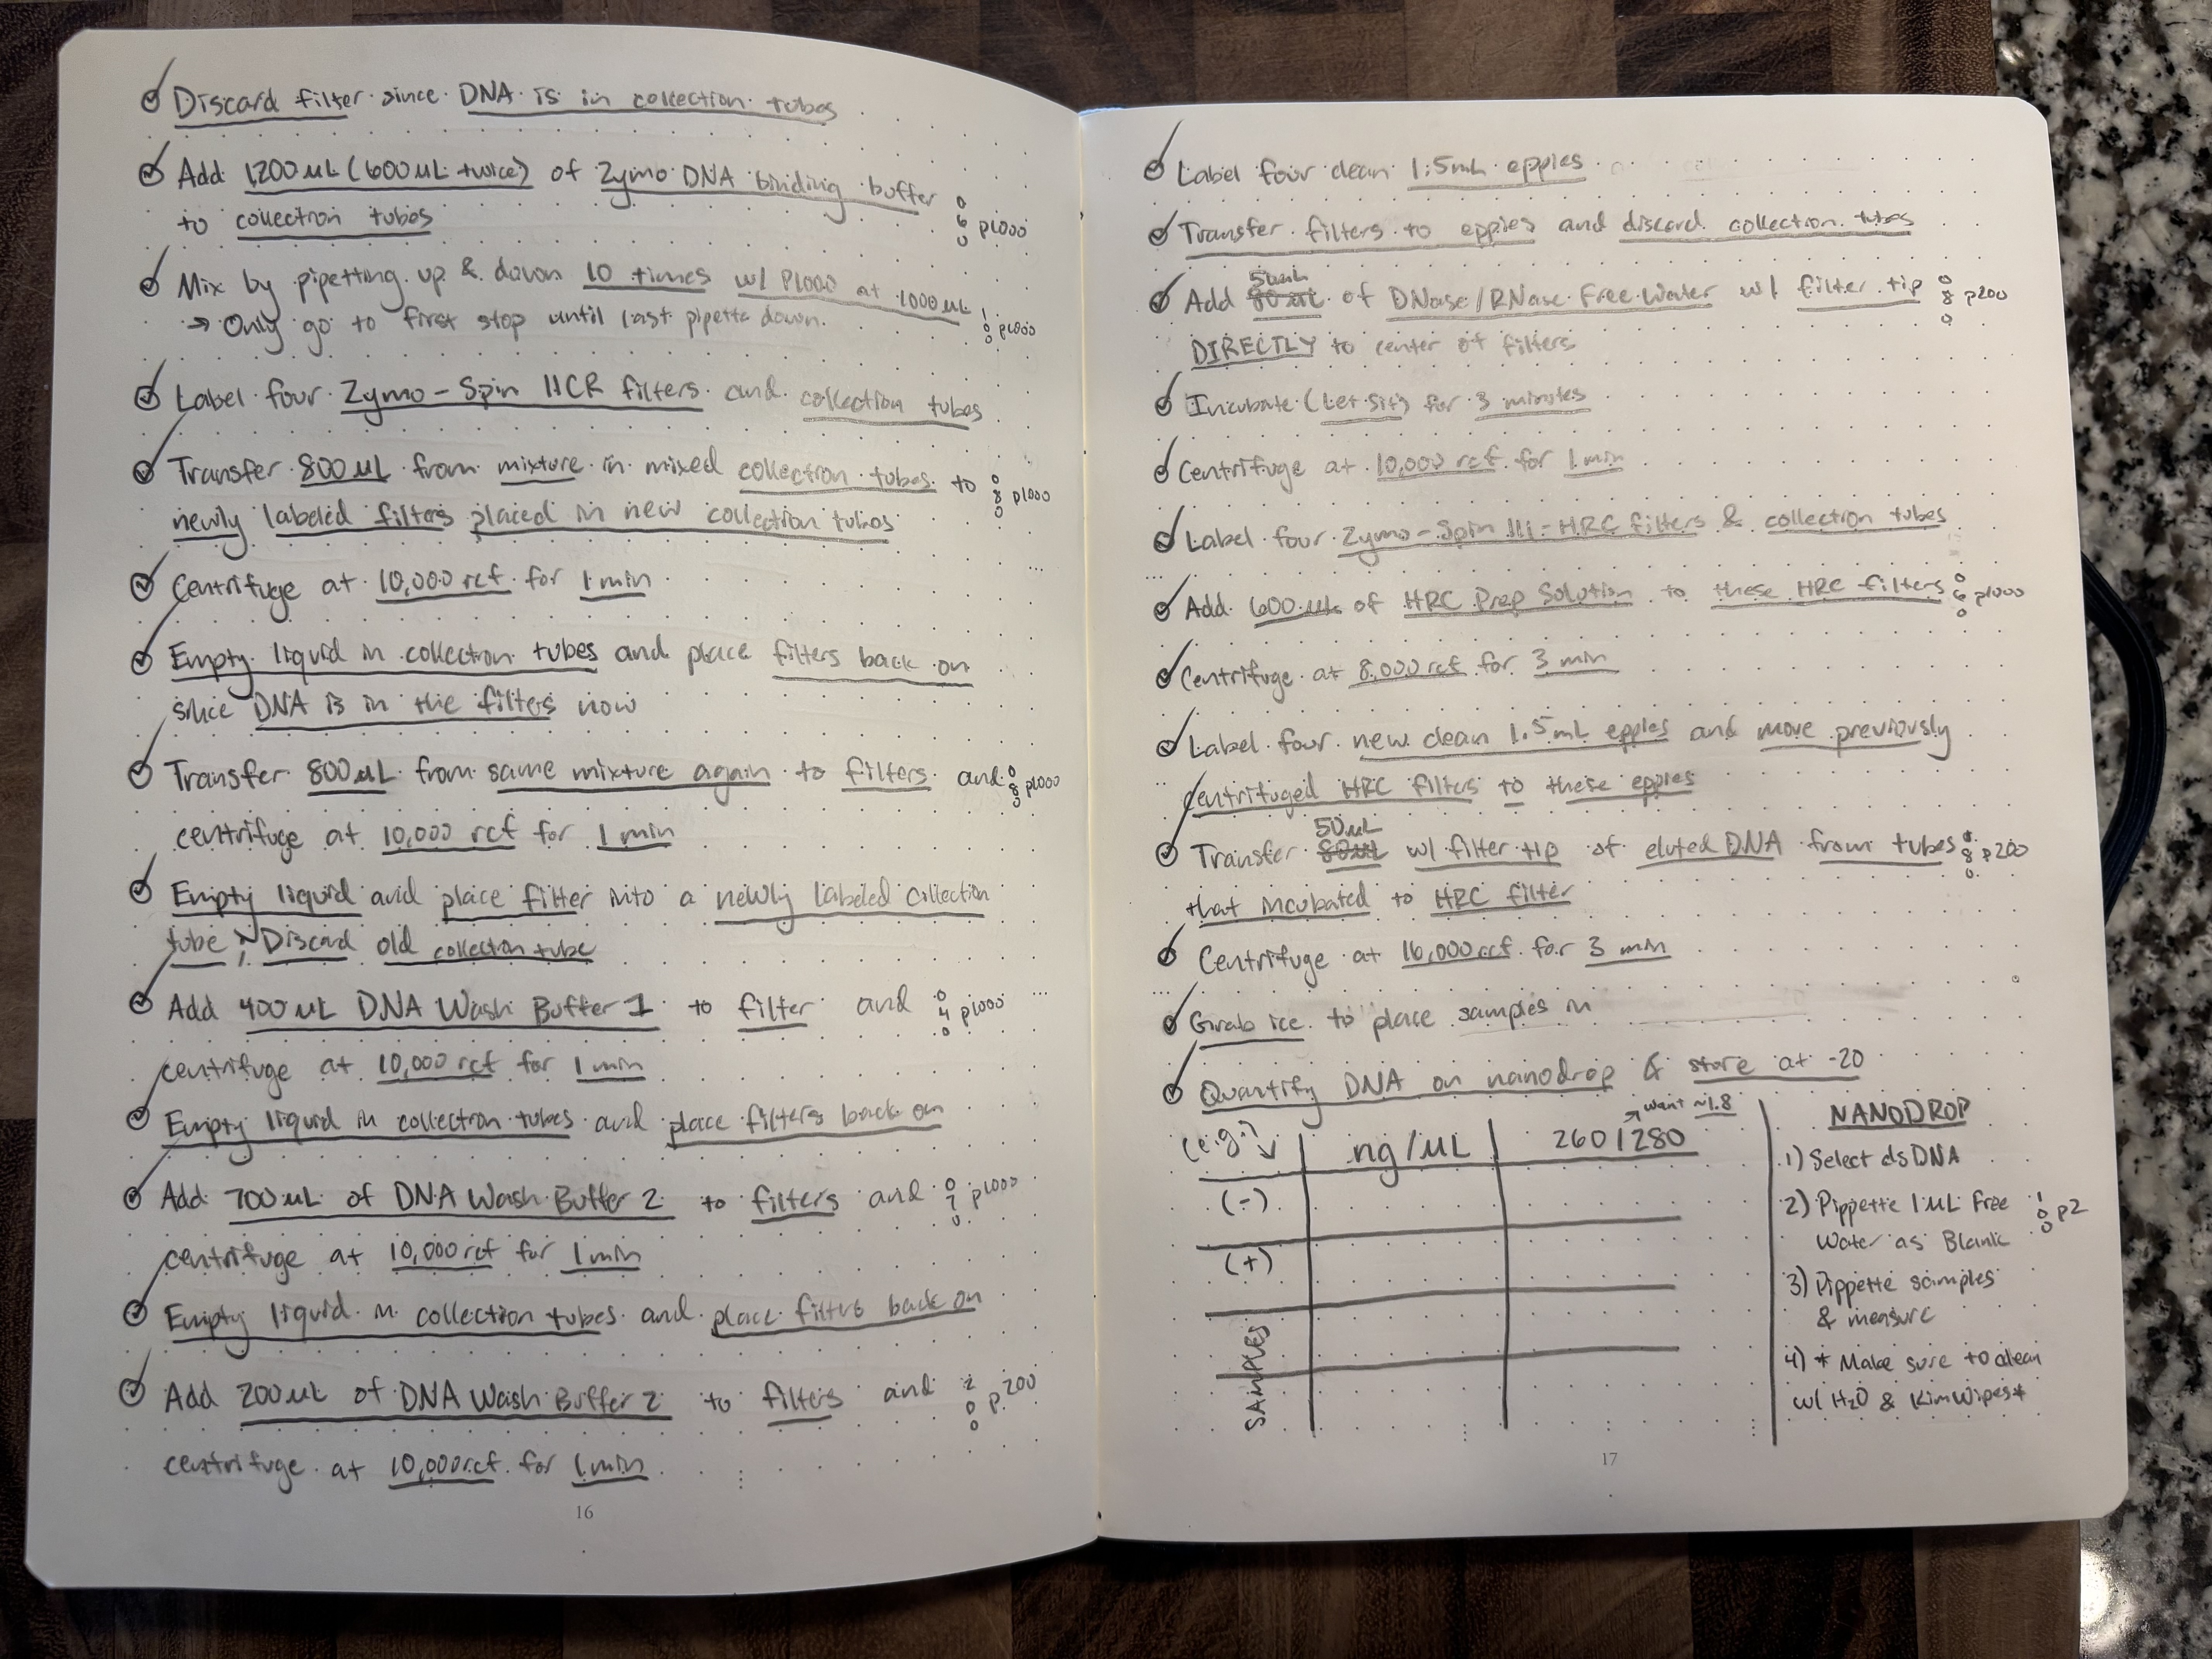 Discard filter since DNA is in collection tubes
Add 1,200 µL (600 µL twice) of Zymo DNA binding buffer
to collection tubes
0
6
0
p1000
Mix by pipetting up & down 10 times w/ P1000 at 1000 µL
→ Only go to first stop until last pipette down.
1
0
0
p1000
Label four Zymo-Spin IICR filters and collection tubes
Transfer 800 µL from mixture in mixed collection tubes to
0
8
0
p1000
newly labeled filters placed in new collection tubes
Centrifuge at 10,000 rcf for 1 min
Empty liquid in collection tubes and place filters back on
since DNA is in the filters now
Transfer 800 µL from same mixture again to filters and
0
8
0
p1000
centrifuge at 10,000 rcf for 1 min
Empty liquid and place filter into a newly labeled collection
tube; Discard old collection tube
Add 400 µL DNA Wash Buffer 1 to filter and
0
4
0
p1000
centrifuge at 10,000 rcf for 1 min
Empty liquid in collection tubes and place filters back on
Add 700 µL of DNA Wash Buffer 2 to filters and
0
7
0
p1000
centrifuge at 10,000 rcf for 1 min
Empty liquid in collection tubes and place filters back on
Add 200 µL of DNA Wash Buffer 2 to filters and
2
0
0
p200
centrifuge at 10,000 rcf for 1 min
16
Label four clean 1.5mL eppies
Transfer filters to eppies and discard collection tubes
50µL
Add 80 µL of DNase/RNase Free Water w/ filter tip
0
8
0
p200
DIRECTLY to center of filters
Incubate (Let Sit) for 3 minutes
Centrifuge at 10,000 rcf for 1 min
Label four Zymo-Spin III-HRC filters & collection tubes
Add 600 µL of HRC Prep Solution to these HRC filters
0
6
0
p1000
Centrifuge at 8,000 rcf for 3 min
Label four new clean 1.5mL eppies and move previously
centrifuged HRC filters to these eppies
50µL
Transfer 80µL w/ filter tip of eluted DNA from tubes
8
0
p200
that incubated to HRC filter
Centrifuge at 16,000 rcf for 3 min
Grab ice to place samples in
Quantify DNA on nanodrop & store at -20
want ~1.8
(e.g.) ↓ ng/µL 260/280
(-)
(+)
SAMPLES
NANODROP
1) Select dsDNA
2) Pippette 1 µL Free
Water as Blank
1
0
0
p2
3) Pippette samples
& measure
4) * Make sure to clean
w/ H₂O & KimWipes*
17